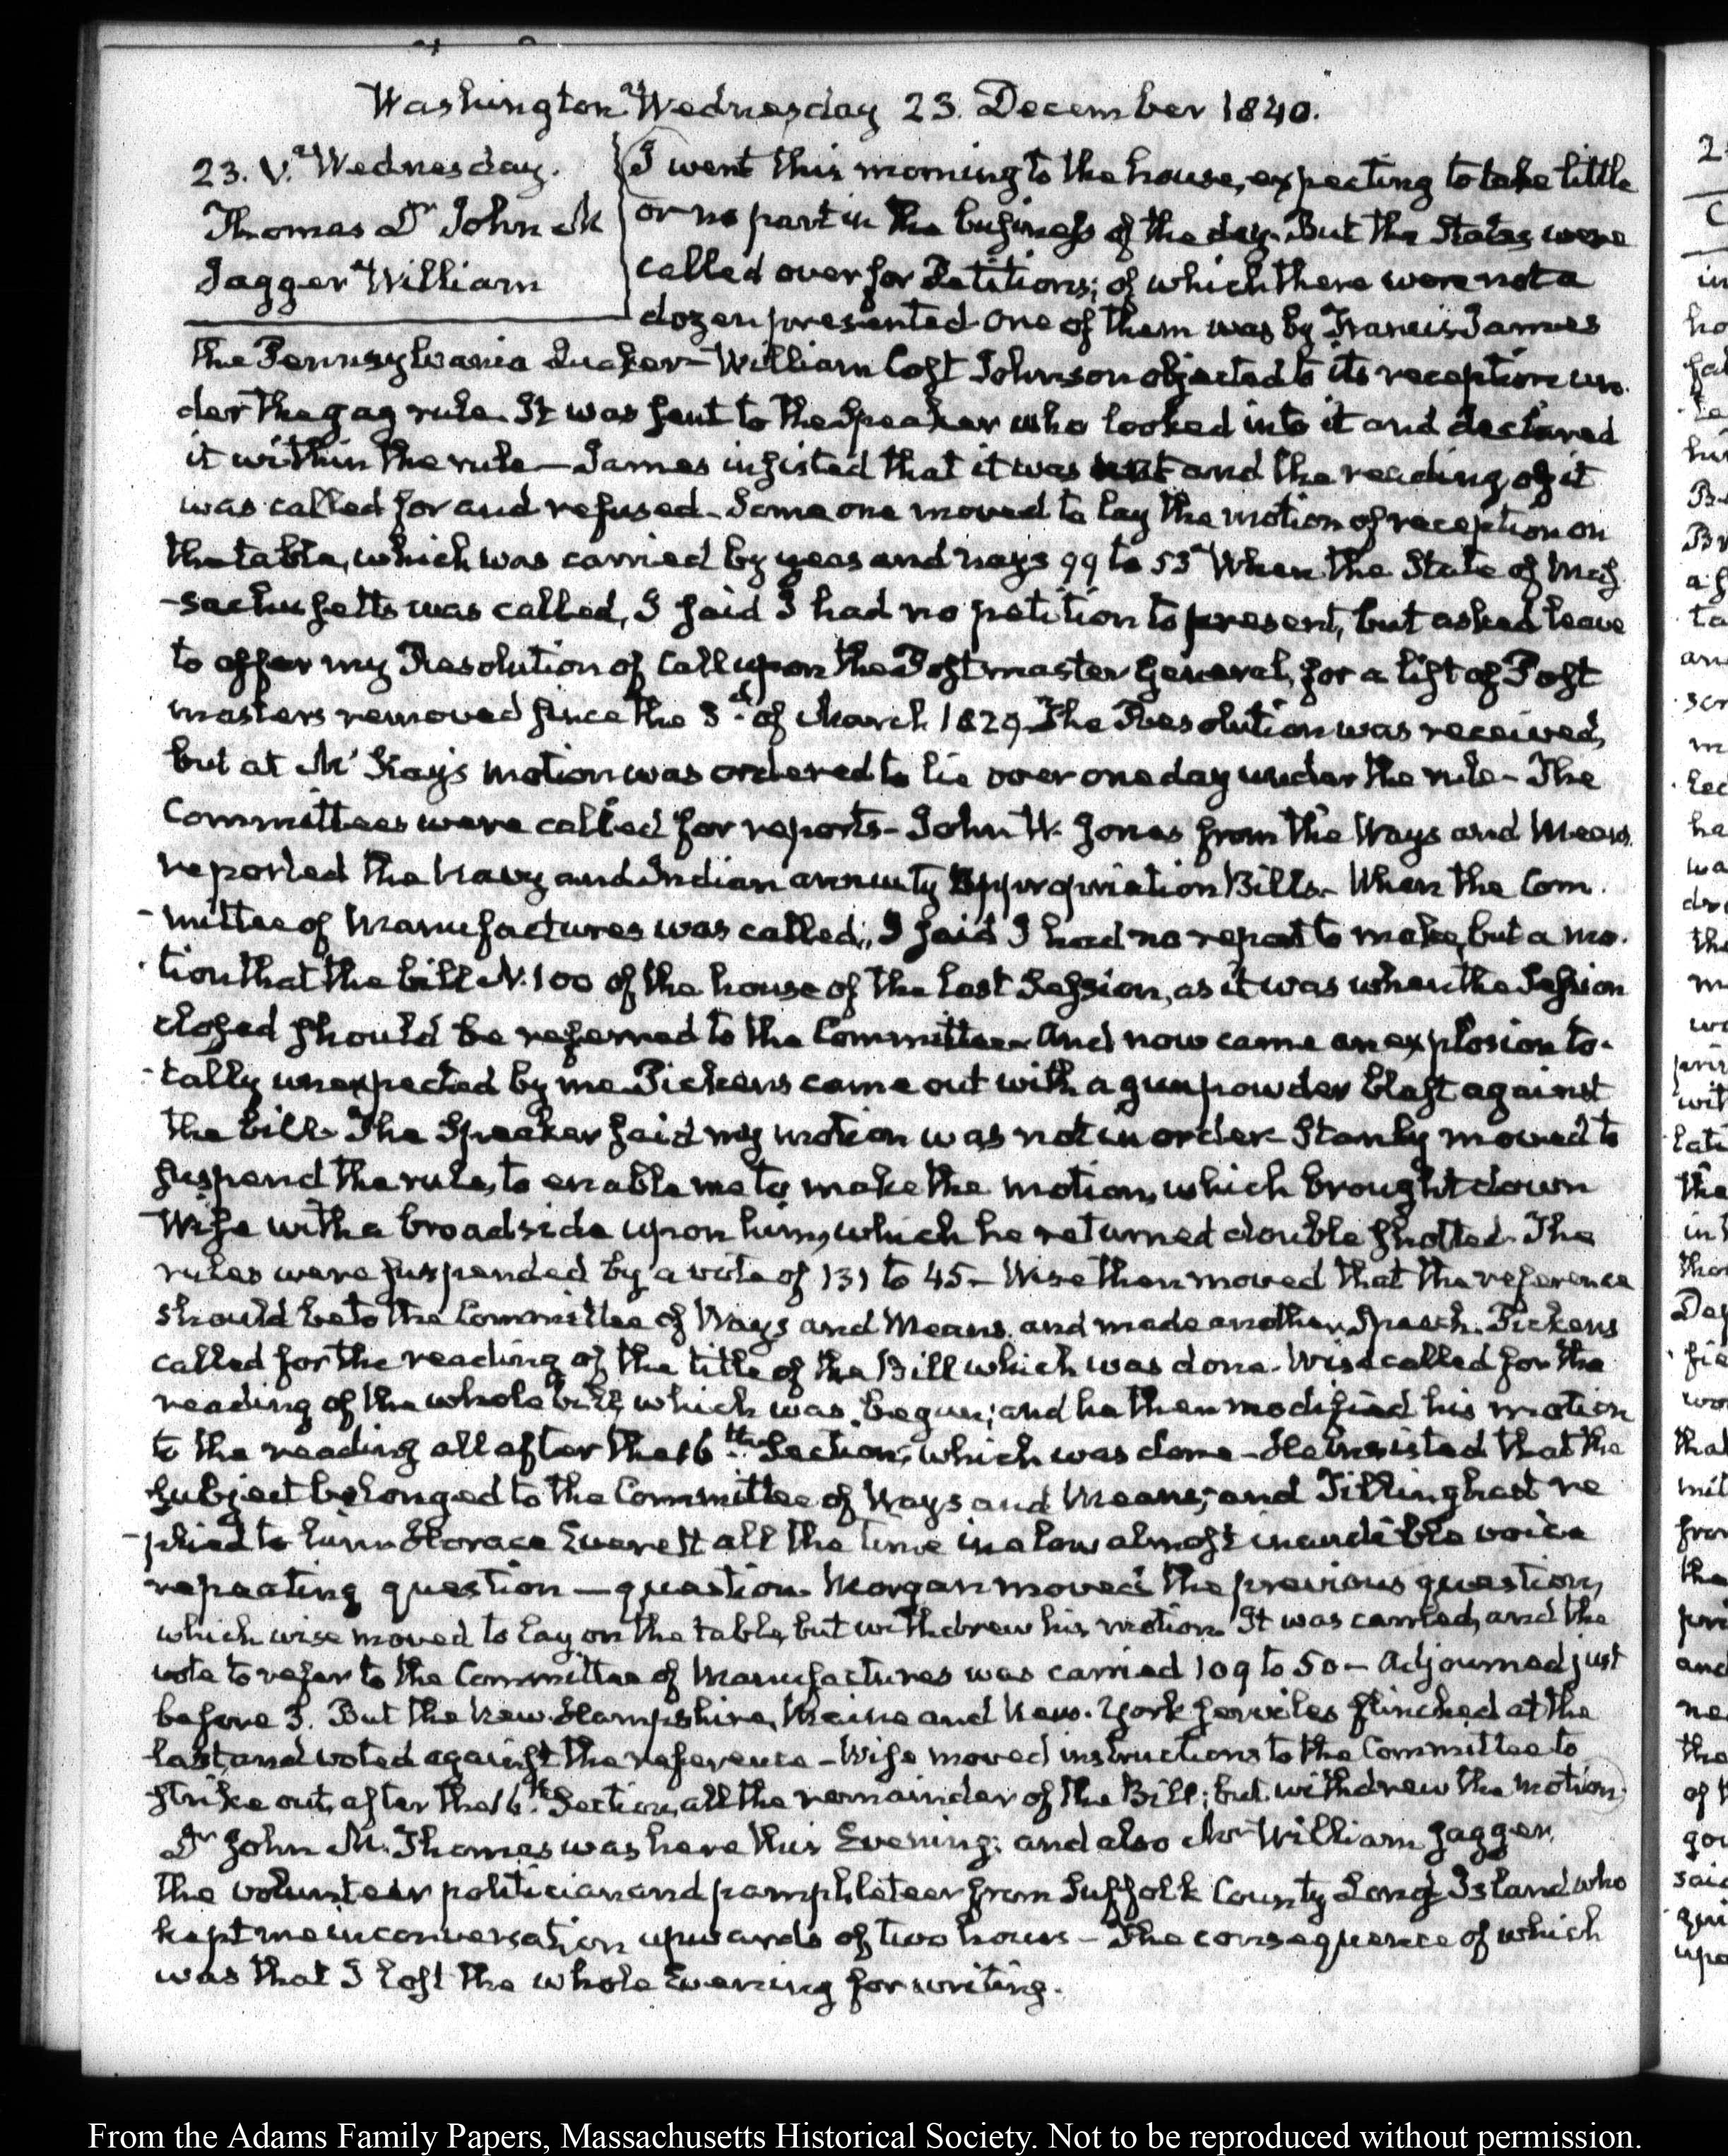 Washington Wednesday 23. December 1840.
23. V. Wednesday.
Thomas Dr John M
Jagger William
I went this morning to the house, expecting to take little
or no part in the business of the day. But the States were
called over for Petitions; of which there were not a
dozen presented. One of them was by Francis James
the Pennsylvania Quaker— William Cost Johnson objected to its reception un-
der the gag rule. It was sent to the Speaker who looked into it and declared
it within the rule— James insisted that it was not and the reading of it
was called for and refused— Some one moved to lay the motion of reception on
the table, which was carried by yeas and nays 99 to 53 When the State of Mas
-sachusetts was called, I said I had no petition to present, but asked leave
to offer my Resolution of Call upon the Postmaster General, for a list of Post
masters removed since the 3d. of March 1829 The Resolution was received,
but at Mc Kay's motion was ordered to lie over one day under the rule— The
Committees were called for reports— John W. Jones from the Ways and Means,
reported the Navy and Indian annuity Appropriation Bills— When the Com
-mittee of Manufactures was called, I said I had no report to make, but a mo-
-tion that the bill N. 100 of the house of the last Session, as it was when the Session
closed should be referred to the Committee— And now came an explosion to-
-tally unexpected by me Pickens came out with a gunpowder blast against
the bill— The Speaker said my motion was not in order— Stanly moved to
suspend the rules, to enable me to make the motion, which brought down
Wise with a broadside upon him, which he returned double shotted— The
rules were suspended by a vote of 131 to 45— Wise then moved that the reference
should be to the Committee of Ways and Means, and made another Speech. Pickens
called for the reading of the title of the Bill which was done— Wise called for the
reading of the whole bill, which was begun; and he then modified his motion
to the reading all after the 16th Section; which was done— He insisted that the
subject belonged to the Committee of Ways and Means; and Tillinghast re
-plied to him— Horace Everett all the time in a low almost inaudible voice
repeating question— question. Morgan moved the previous question,
which Wise moved to lay on the table, but withdrew his motion. It was carried, and the
vote to refer to the Committee of Manufactures was carried 109 to 50— Adjourned just
before 3. But the New-Hampshire, Maine and New-York serviles flinched at the
last, and voted against the reference— Wise moved instructions to the Committee to
strike out, after the 16th Section, all the remainder of the Bill; but withdrew the motion.
Dr John M. Thomas was here this Evening; and also Mr William Jagger,
the volunteer politician and pamphleteer from Suffolk County Long Island who
kept me in conversation upwards of two hours— The consequence of which
was that I lost the whole Evening for writing.
From the Adams Family Papers, Massachusetts Historical Society. Not to be reproduced without permission.